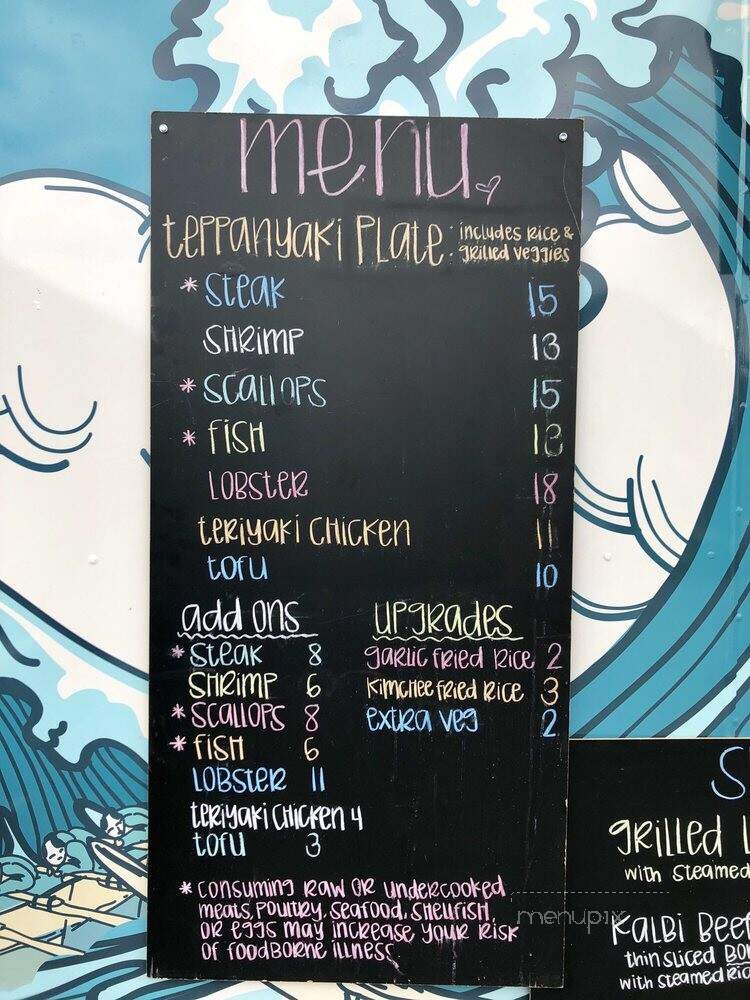 menu
teppanyaki plate: includes rice & grilled veggies
* steak 15
shrimp 13
* scallops 15
* fish 13
lobster 18
teriyaki chicken 11
tofu 10
add ons
* steak 8
shrimp 6
* scallops 8
* fish 6
lobster 11
teriyaki chicken 4
tofu 3
upgrades
garlic fried rice 2
kimchee fried rice 3
extra veg 2
* consuming raw or undercooked
meats, poultry, seafood, shellfish,
or eggs may increase your risk
of foodborne illness
menupix
S
grilled L
with steamed
Kalbi Beef
thin sliced bo
with steamed ric